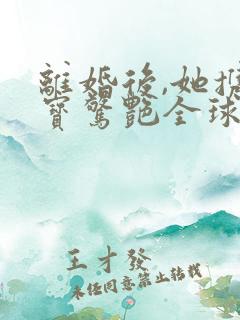 離婚後,她攜
寶驚艷全球
王才發
未經同意禁止轉載